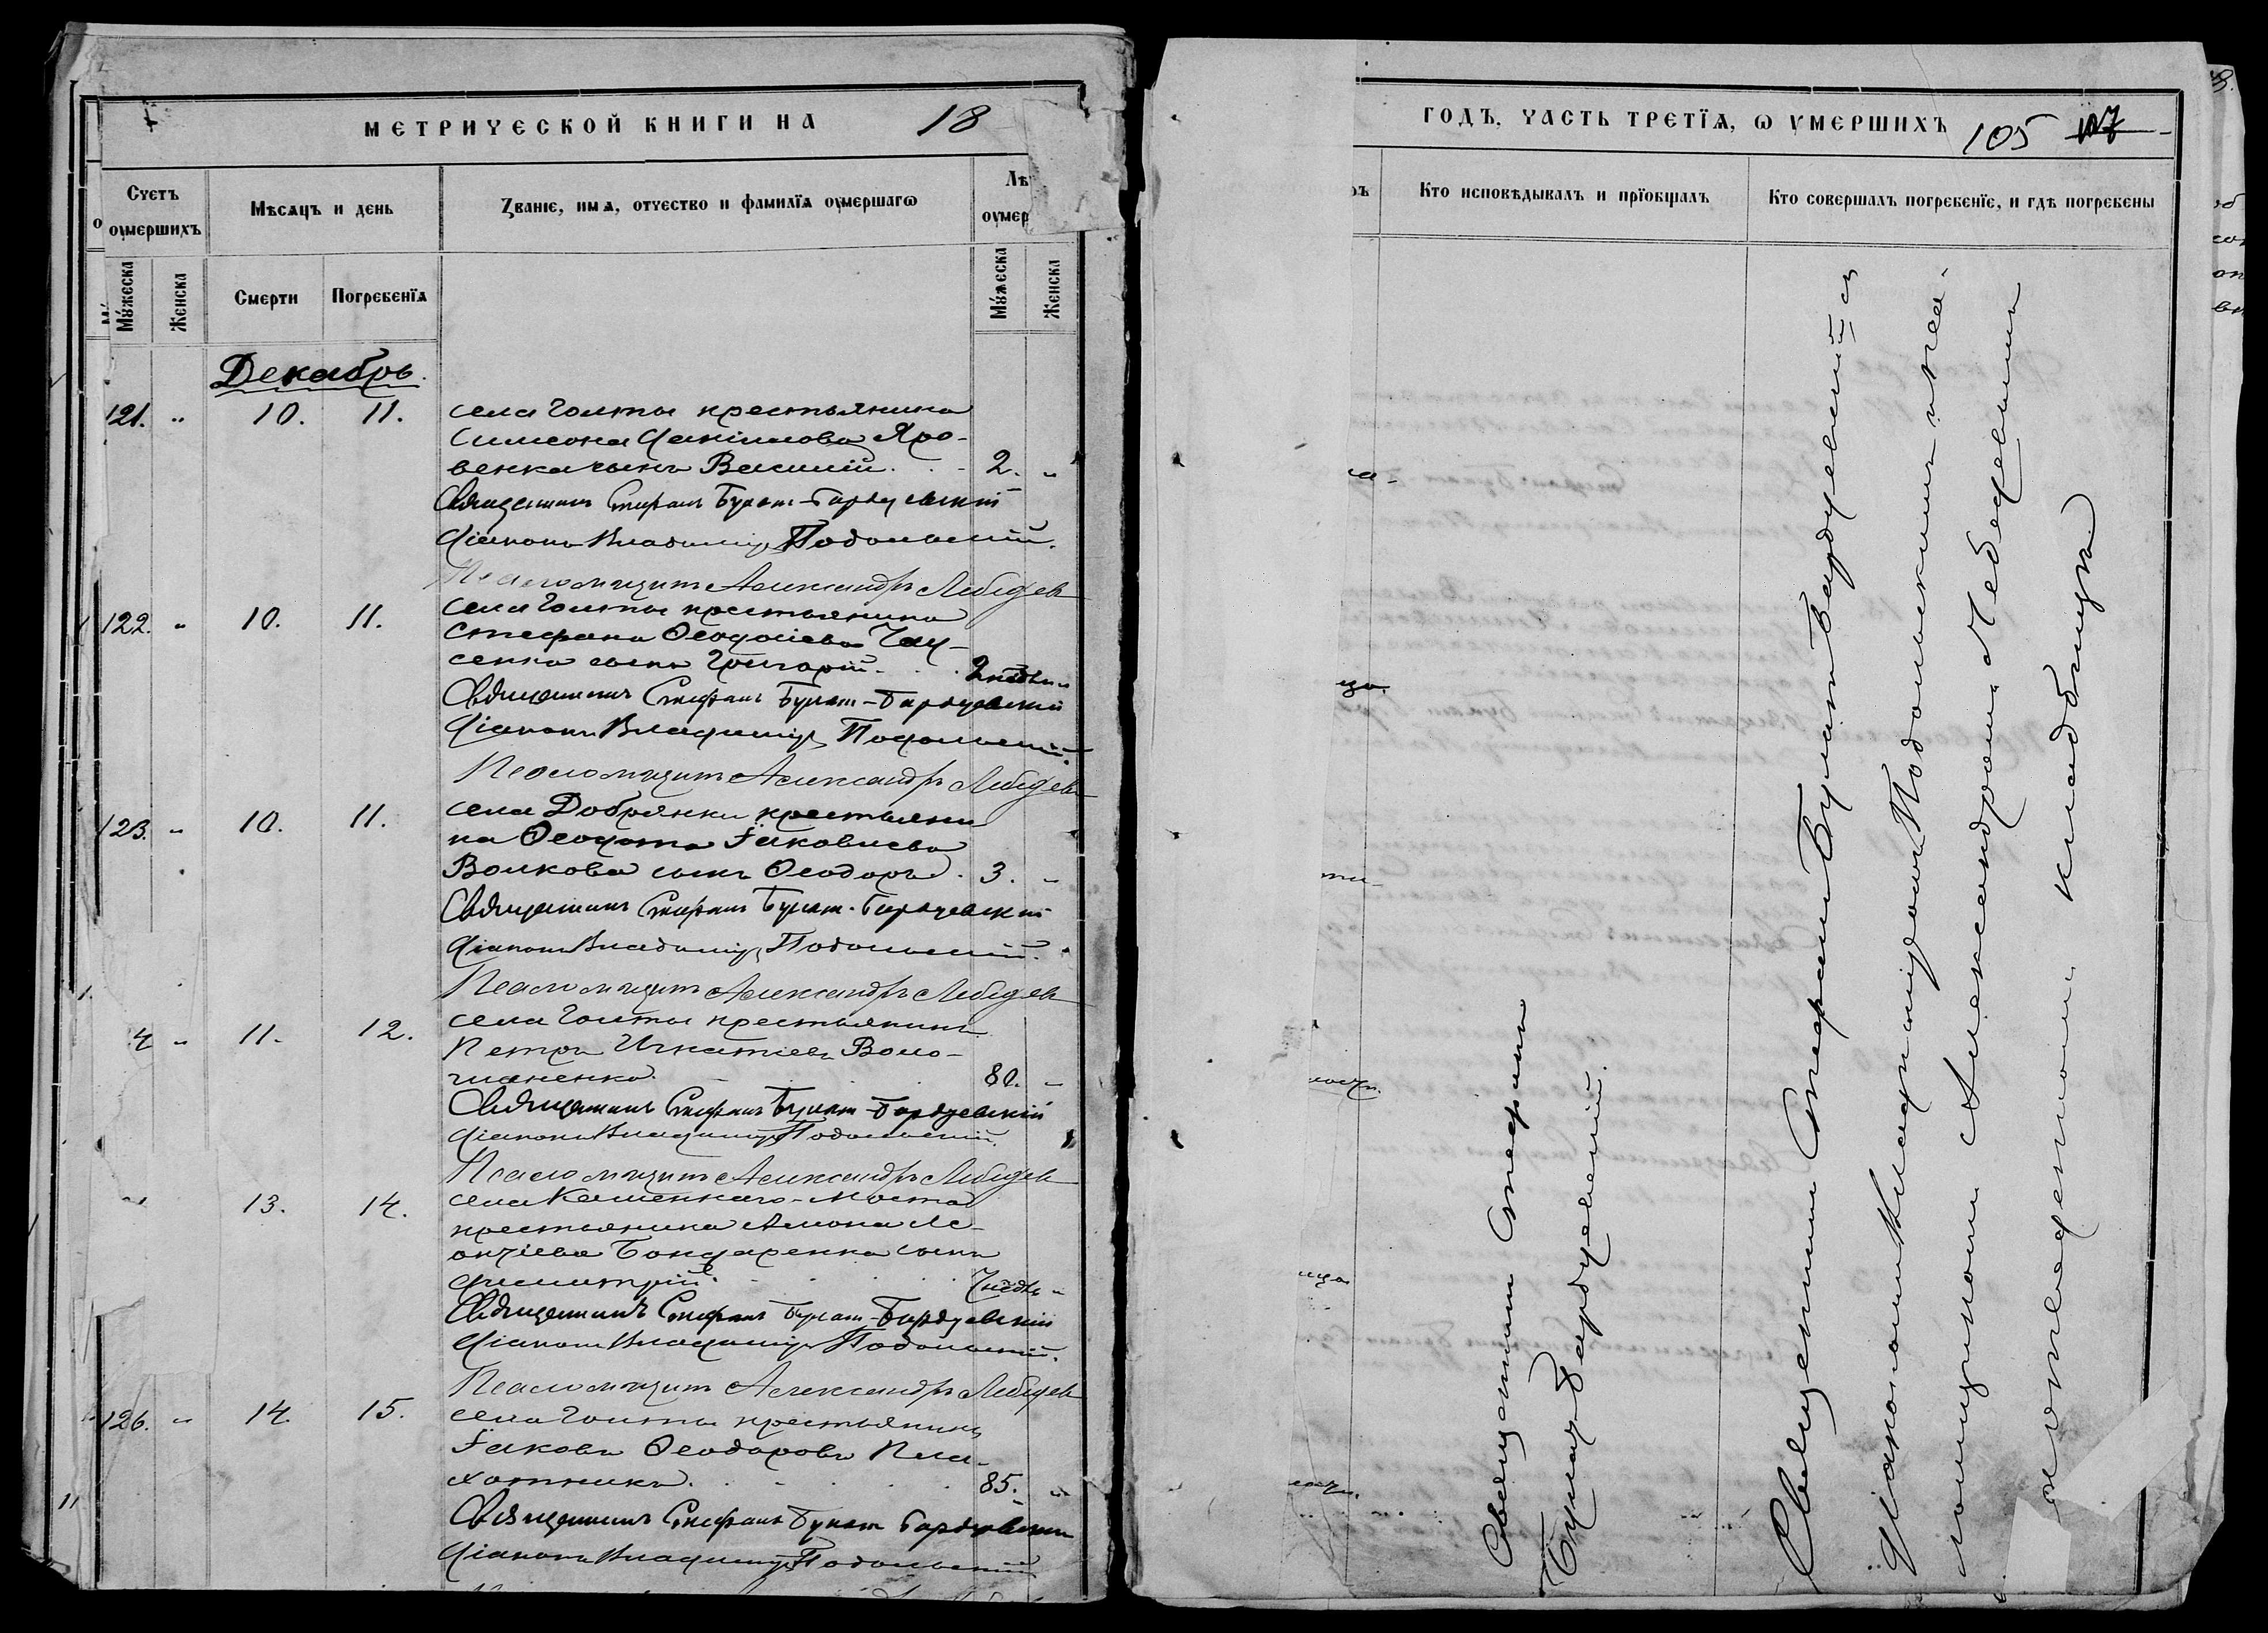 МЕТРИЧЕСКОЙ КНИГИ НА 18
Счетъ оумершихъ
Мѣсяцъ и день
Званіе, имя, отчество и фамилія оумершагω
Лѣ
оумер
Мужеска
Женска
Смерти
Погребенія
Мужеска
Женска
Декабрь.
121. " 10. 11. села Голты крестьянина
Симеона Іакимова Яро-
венка сынъ Василій. 2. "
Священникъ Стефанъ Булат-Бардуевский
Діаконъ Владиміръ Подольский.
Псаломщикъ Александръ Лебедев
122. " 10. 11. села Голты крестьянина
Стефана Ѳеодосіева
сенка сынъ Григорій. 2 недѣли
Священникъ Стефанъ Булат-Бардуевский
Діаконъ Владиміръ Подольский.
Псаломщикъ Александръ Лебедев
123. " 10. 11. села Добрянки крестьяни
на Ѳеодота Іаковлева
Волкова сынъ Ѳеодоръ. 3. "
Священникъ Стефанъ Булат-Бардуевский
Діаконъ Владиміръ Подольский.
Псаломщикъ Александръ Лебедев
4 " 11. 12. села Голты крестьянинъ
Петръ Игнатіевъ Воло-
80. "
Священникъ Стефанъ Булат-Бардуевский
Діаконъ Владиміръ Подольский.
Псаломщикъ Александръ Лебедев
" 13. 14. села Каменнаго-Моста
крестьянина Ле-
онтіева Бондаренка сынъ
Димитрій. недѣ "
Священникъ Стефанъ Булат-Бардуевский
Діаконъ Владиміръ Подольский.
Псаломщикъ Александръ Лебедев
126. " 14. 15. села Голты крестьянинъ
Іаковъ Ѳеодоровъ Пла-
хотникъ. 85. "
Священникъ Стефанъ Булат Бардуевский
Діаконъ Владиміръ Подольский
ГОДЪ, ЧАСТЬ ТРЕТІЯ, ω УМЕРШИХЪ 105
Кто исповѣдывалъ и пріобщалъ
Кто совершалъ погребеніе, и гдѣ погребены
Священникъ Стефанъ
Булат-Бардуевский.
Священникъ Стефанъ Булат-Бардуевский съ
Діакономъ Владиміромъ Подольскимъ и пса-
ломщикомъ Александромъ Лебедевымъ
на отведенномъ кладбищѣ